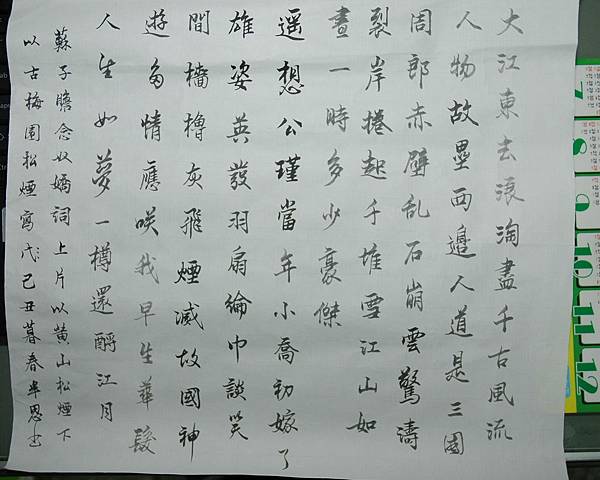 大江東去浪淘盡千古風流
人物故壘西邊人道是三國
周郎赤壁乱石崩雲驚濤
裂岸捲起千堆雪江山如
畫一時多少豪傑
遥想公瑾當年小喬初嫁了
雄姿英發羽扇綸巾談笑
間檣櫓灰飛煙滅故國神
遊多情應咲我早生華髮
人生如夢一樽還酹江月
蘇子瞻念奴嬌詞上片以黄山松煙下
以古梅園松煙寫成己丑暮春半恩书
7
8
9
10
11
12